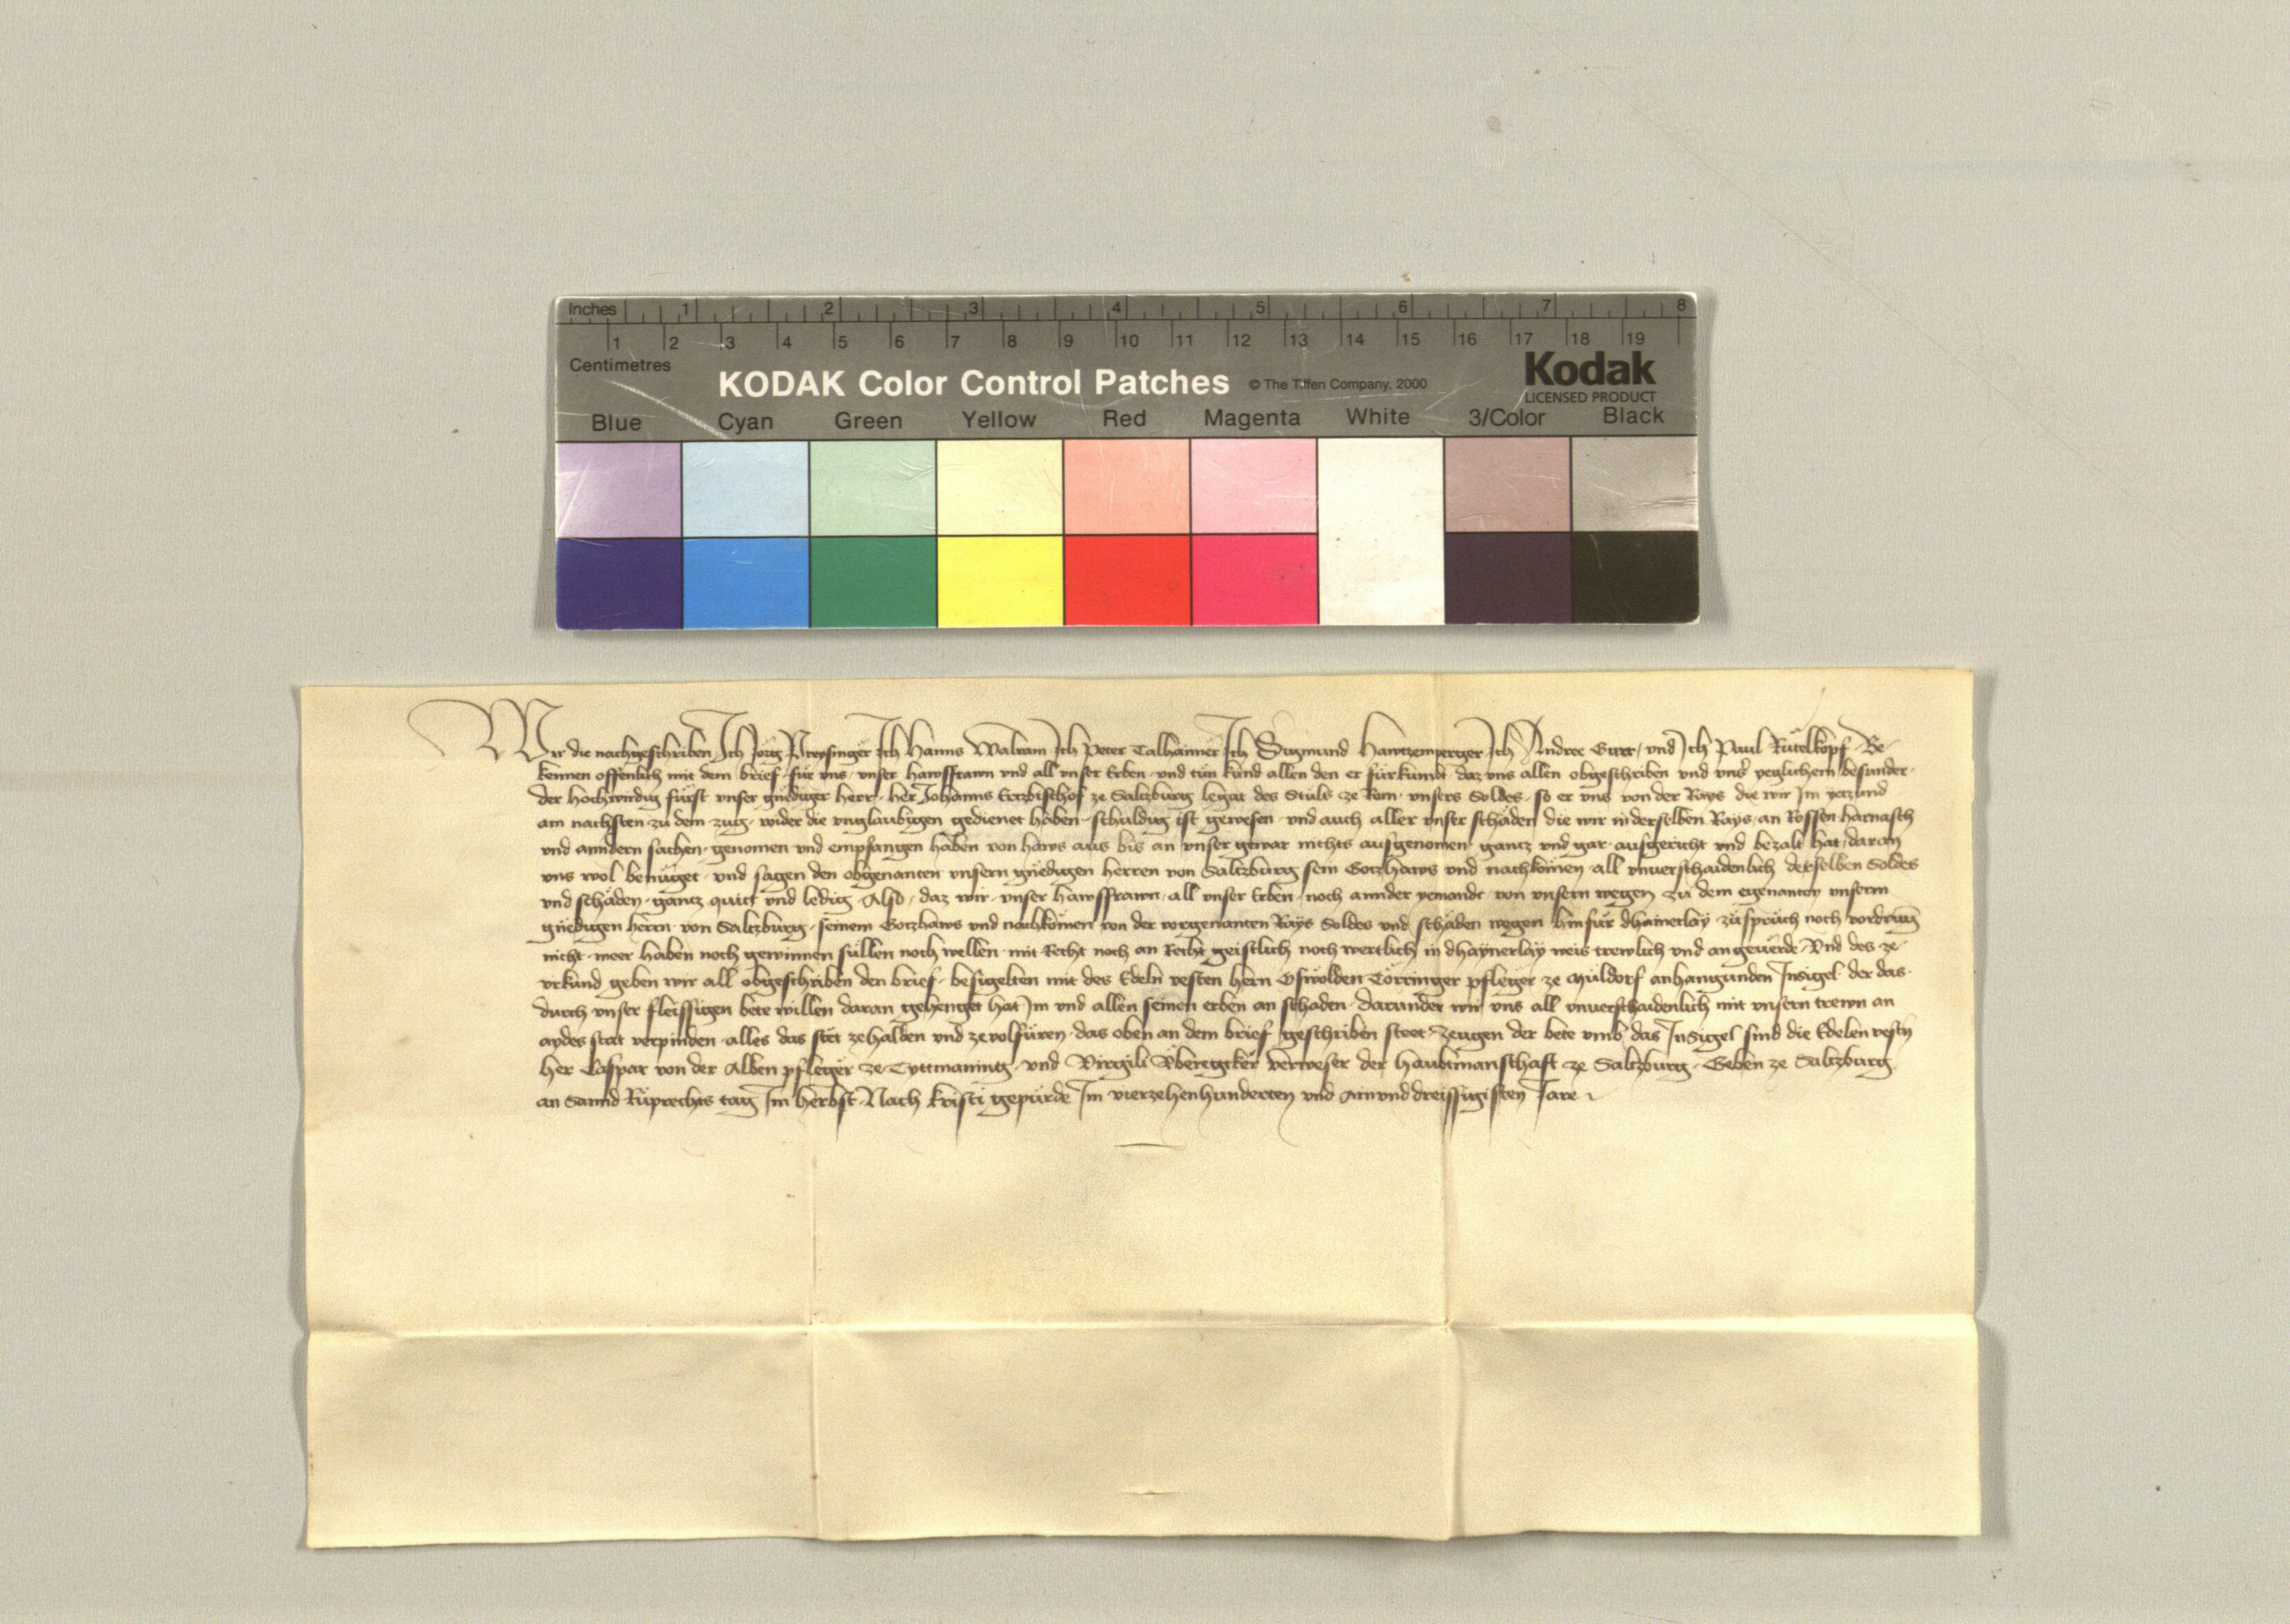 Inches 1 2 3 4 5 6 7 8
1 2 3 4 5 6 7 8 9 10 11 12 13 14 15 16 17 18 19
Centimetres
KODAK Color Control Patches © The Tiffen Company, 2000 Kodak
LICENSED PRODUCT
Blue Cyan Green Yellow Red Magenta White 3/Color Black
Wir die nachgeschriben Ich Jörg Preysinger Ich Hanns Walram Ich Peter Talhaimer Ich Sigmund Hawtzemperger Ich Andree Gurr, und Ich Paul Rütelkopf Be-
kennen offenlich mit dem brief für vns vnser hawsffrawn vnd all vnser Erben vnd tün kund allen den er fürkumbt daz vns allen obgeschriben vnd vnser yeglichem besunder
der hochwirdig fürst vnser gnëdiger herr her Johanns Ertzbischof ze Saltzburg legat des Stuls ze Rom vnsers Soldes so er vns von der Rays die wir Im yetzund
am nachsten zu dem zug wider die vnglaubigen gedienet haben schuldig ist gewesen vnd auch aller vnser schäden die wir in derselben Rays an Rossen harnasch
vnd anndern sachen genomen vnd empfangen haben von haws aus bis an vnser gewar nichts ausgenomen gantz vnd gar ausgericht vnd bezalt hat daran
vns wol benüget vnd sagen den obgenanten vnsern gnëdigen herren von Saltzburg sein Gotzhaws vnd nachkömen all vnuerschaidenlich derselben Soldes
vnd schäden gantz quitt vnd ledig Also daz wir vnser hawsffrawn all vnser Erben noch annder yemandt von vnsern wegen zu dem egenanten vnserm
gnëdigen herrn von Saltzburg seinem Gotzhaws vnd nachkömen von der vorgenanten Rays Soldes vnd schäden wegen hinfür dhainerlay züsprüch noch vordrung
nicht meer haben noch gewinnen süllen noch wellen mit Recht noch an Recht geistlich noch wertlich in dhaynerlay weis trewlich vnd an geuërde Vnd des ze
vrkund geben wir all obgeschriben den brief besigelten mit des Edeln vesten hern Oswolden Törringer pfleger ze Müldorf anhangunden Insigel der das
durch vnser fleissigen bete willen daran gehenget hat Im vnd allen seinen erben an schaden darunder wir vns all vnuerschaidenlich mit vnsern trewn an
aydes stat verpinden alles das stët ze halden vnd ze volfüren das oben an dem brief geschriben steet Zeugen der bete vmb das Insigel sind die Edelen vesten
her Caspar von der Alben pfleger ze Tyttmaning vnd Virgili Vberegker verweser der haubtmanschaft ze Saltzburg Geben ze Saltzburg
an Sannd Ruprechts tag Im herbst Nach kristi gepürde Im vierzehenhunderten vnd ainunddreissigisten Jare